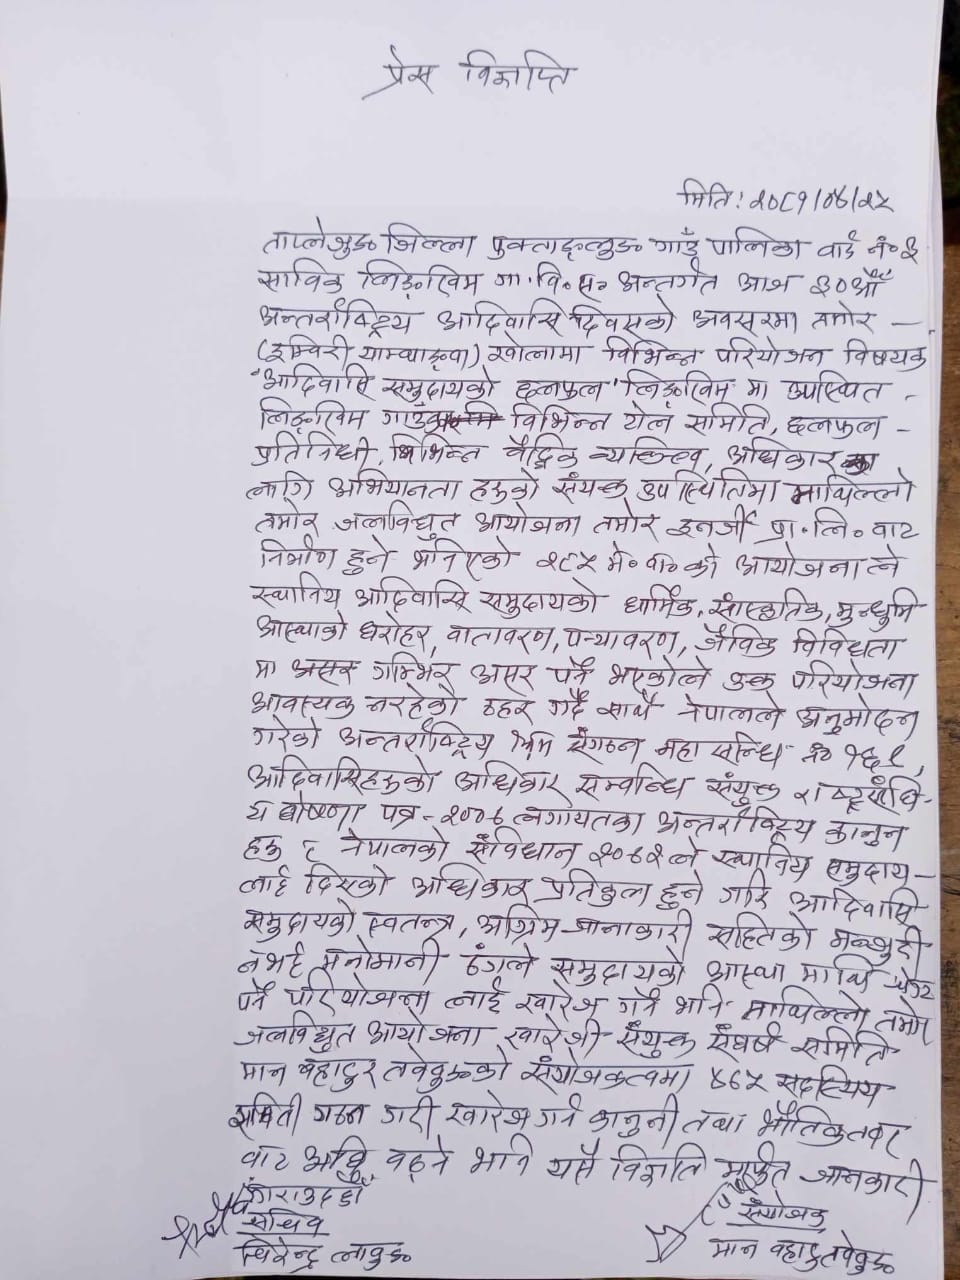 प्रेस विज्ञप्ति
मिति: २०८१/०४/२५
ताप्लेजुङ जिल्ला फुक्ताङलुङ गाउँ पालिका वार्ड नं॰ ३
साविक लिङ्खिम गा.वि.स. अन्तर्गत आज ३०औँ
अन्तर्राष्ट्रिय आदिवासि दिवसको अवसरमा तमोर –
खोलामा विभिन्न परियोजन विषयक
"आदिवासि समुदायको छलफल" लिङ्खिम मा उपस्थित -
लिङ्खिम विभिन्न समिति, छलफल -
प्रतिनिधी, विभिन्न व्यक्तित्व, अधिकार का
लागि अभियानता हरुको संयुक्त उपस्थितिमा माथिल्लो
तमोर जलविद्युत आयोजना तमोर इनर्जी प्रा.लि॰ बाट
निर्माण हुने भनिएको २८५ मे॰ वा॰ को आयोजनाले
स्थानिय आदिवासि समुदायको धार्मिक, सांस्कृतिक, मुन्धुमि
आस्थाको धरोहर, वातावरण, पर्यावरण, जैविक विविधता
मा गम्भिर असर पर्ने भएकोले उक्त परियोजना
आवश्यक नरहेको ठहर गर्दै साथै नेपालले अनुमोदन
गरेको अन्तर्राष्ट्रिय श्रम संगठन महा सन्धि नं॰ १६९,
आदिवासिहरुको अधिकार सम्बन्धि संयुक्त राष्ट्रसंघि-
य घोषणा पत्र - २००७ लगायतका अन्तर्राष्ट्रिय कानुन
हरु र नेपालको संविधान २०७२ ले स्थानिय समुदाय –
लाई दिएको अधिकार प्रतिकुल हुने गरि आदिवासि
समुदायको स्वतन्त्र, अग्रिम जानाकारी सहितको मञ्जुरी
नभई मनोमानी ढंगले समुदायको आस्था माथि
पर्ने परियोजना लाई खारेज गर्न भनि माथिल्लो तमोर
जलविद्युत आयोजना खारेजी संयुक्त संघर्ष समिति
मान बहादुर तवेबुङको संयोजकत्वमा ४७५ सदस्यिय
समिती गठन गरी खारेज गर्न कानुनी तथा भौतिक तवर
बाट अघि बढ्ने भनि यसै विज्ञप्ति मार्फत जानकारी
गराउदछौँ
सचिव
धिरेन्द्र लावुङ
संयोजक
मान बहादुर तवेबुङ